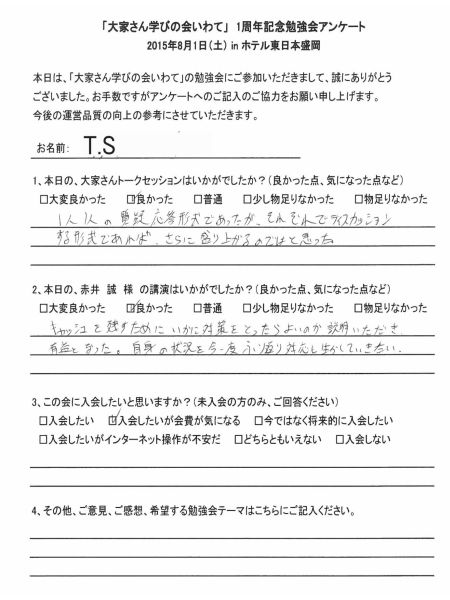 「大家さん学びの会いわて」 1周年記念勉強会アンケート
2015年8月1日(土) in ホテル東日本盛岡
本日は、「大家さん学びの会いわて」の勉強会にご参加いただきまして、誠にありがとう
ございました。お手数ですがアンケートへのご記入のご協力をお願い申し上げます。
今後の運営品質の向上の参考にさせていただきます。
お名前: T.S
1、本日の、大家さんトークセッションはいかがでしたか?(良かった点、気になった点など)
□大変良かった ☑良かった □普通 □少し物足りなかった □物足りなかった
1人1人の質疑応答形式であったが、それぞれでディスカッション
する形式であれば、さらに盛り上がるのではと思った
2、本日の、赤井 誠 様 の講演はいかがでしたか?(良かった点、気になった点など)
□大変良かった ☑良かった □普通 □少し物足りなかった □物足りなかった
キャッシュを残すために いかに対策をとったらよいのか 説明いただき
有益となった。自身の状況を今一度ふり返り対応し生かしていきたい。
3、この会に入会したいと思いますか?(未入会の方のみ、ご回答ください)
□入会したい ☑入会したいが会費が気になる □今ではなく将来的に入会したい
□入会したいがインターネット操作が不安だ □どちらともいえない □入会しない
4、その他、ご意見、ご感想、希望する勉強会テーマはこちらにご記入ください。